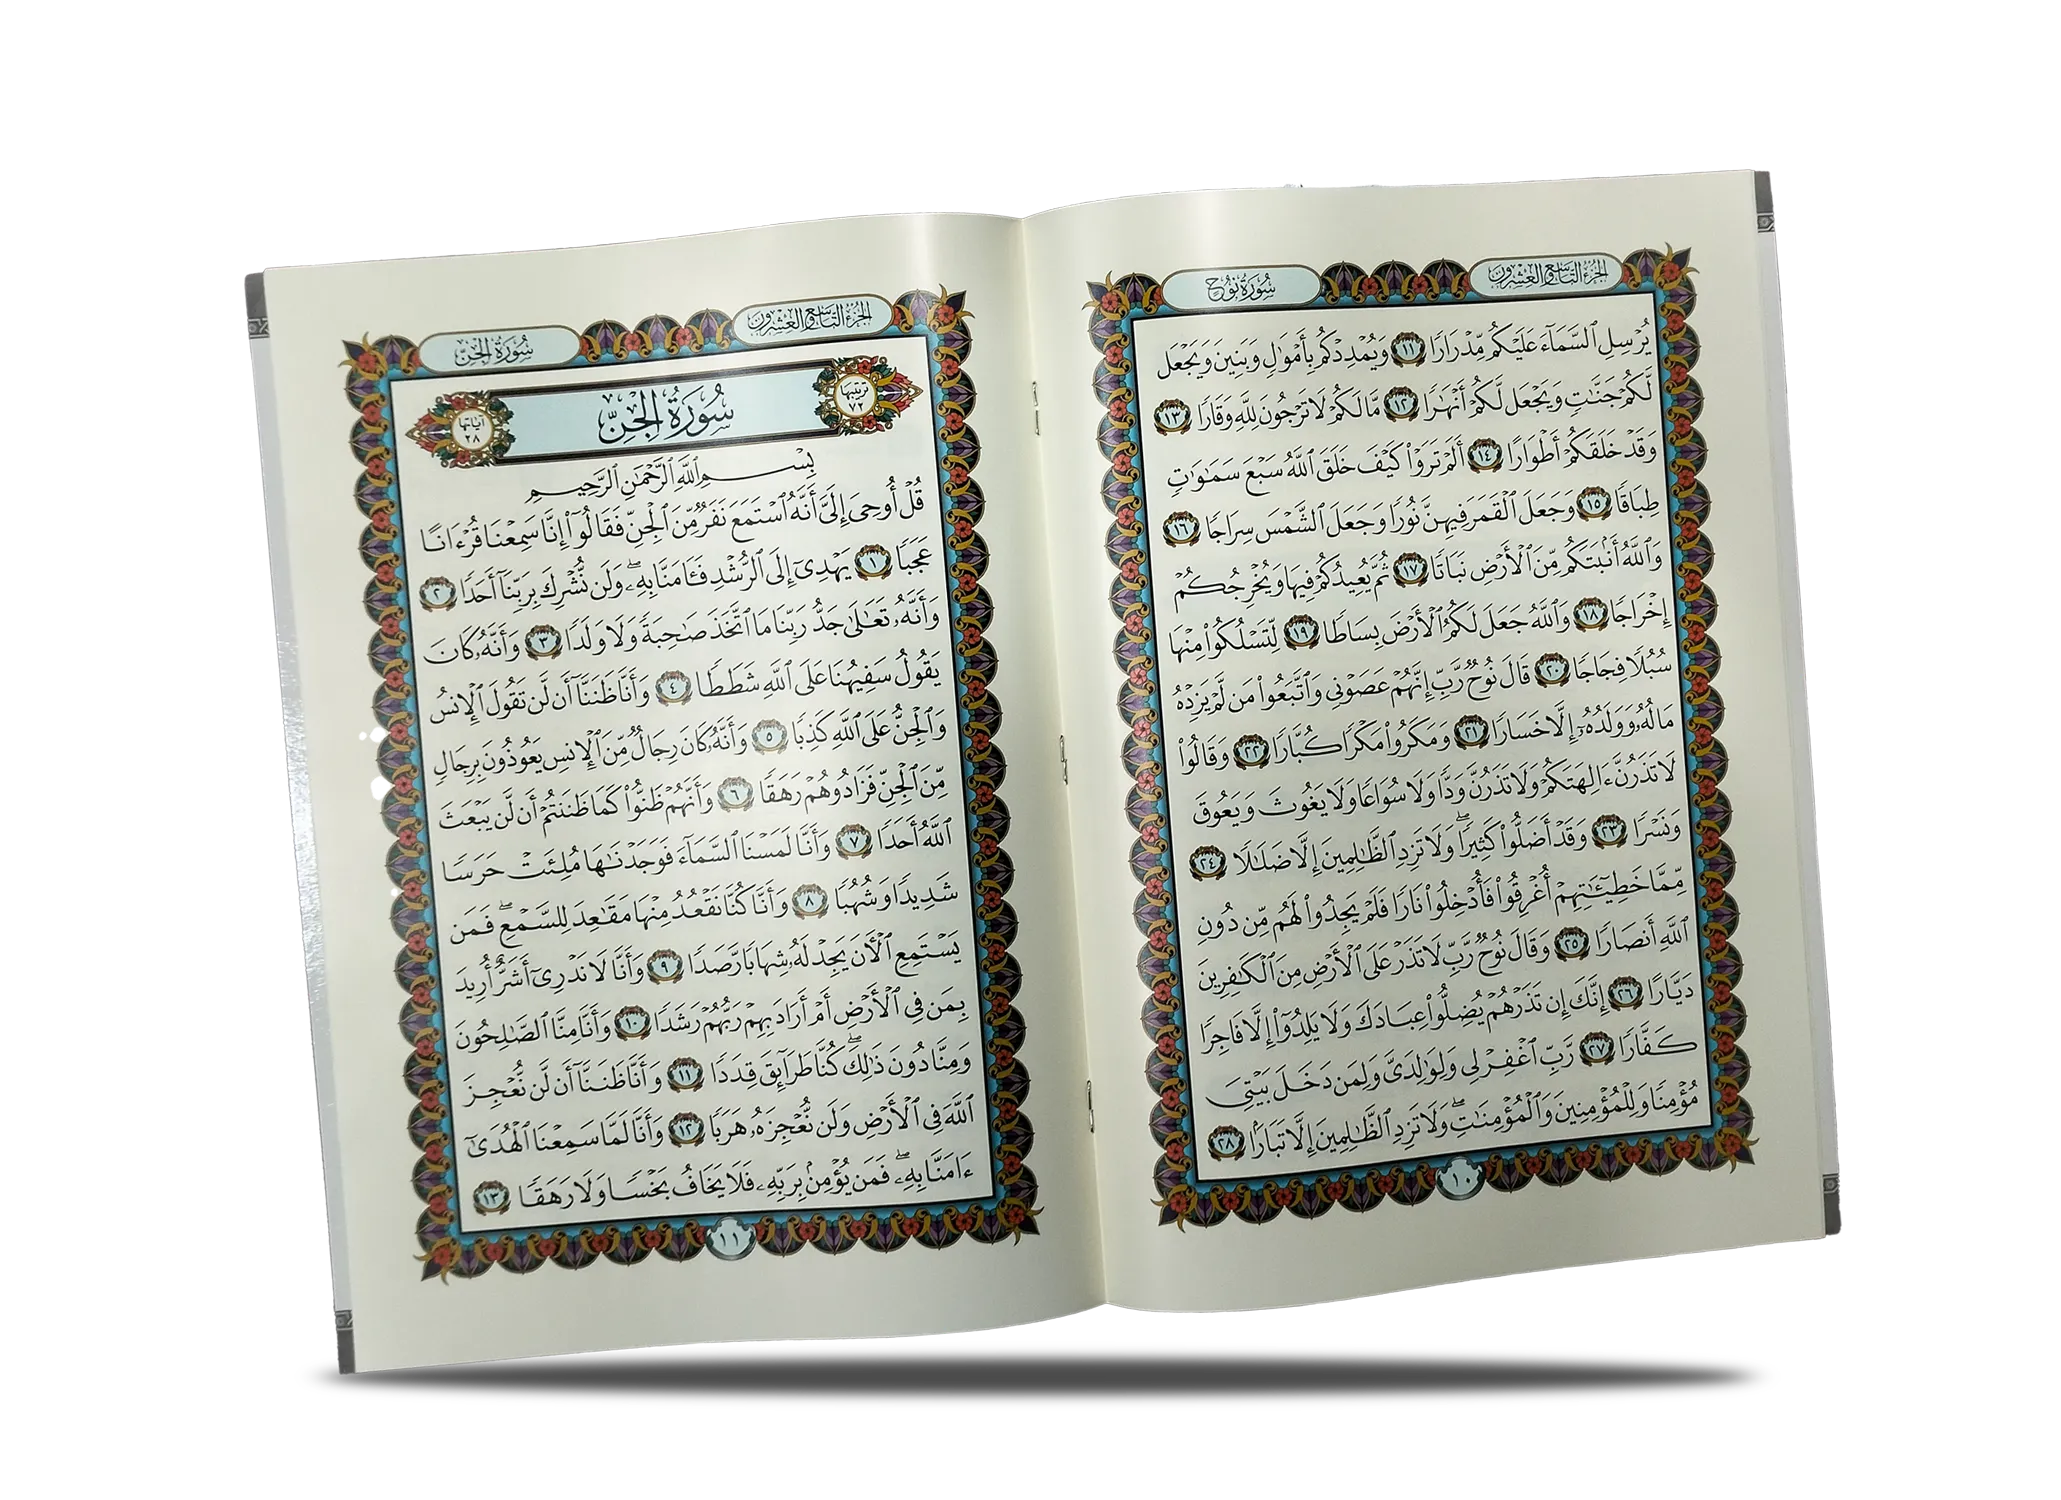 الجزء التاسع والعشرون
سورة نوح
يُرْسِلِ ٱلسَّمَآءَ عَلَيْكُم مِّدْرَارًا ١١ وَيُمْدِدْكُم بِأَمْوَٰلٍ وَبَنِينَ وَيَجْعَل
لَّكُمْ جَنَّٰتٍ وَيَجْعَل لَّكُمْ أَنْهَٰرًا ١٢ مَّا لَكُمْ لَا تَرْجُونَ لِلَّهِ وَقَارًا ١٣
وَقَدْ خَلَقَكُمْ أَطْوَارًا ١٤ أَلَمْ تَرَوْا۟ كَيْفَ خَلَقَ ٱللَّهُ سَبْعَ سَمَٰوَٰتٍ
طِبَاقًا ١٥ وَجَعَلَ ٱلْقَمَرَ فِيهِنَّ نُورًا وَجَعَلَ ٱلشَّمْسَ سِرَاجًا ١٦
وَٱللَّهُ أَنۢبَتَكُم مِّنَ ٱلْأَرْضِ نَبَاتًا ١٧ ثُمَّ يُعِيدُكُمْ فِيهَا وَيُخْرِجُكُمْ
إِخْرَاجًا ١٨ وَٱللَّهُ جَعَلَ لَكُمُ ٱلْأَرْضَ بِسَاطًا ١٩ لِّتَسْلُكُوا۟ مِنْهَا
سُبُلًا فِجَاجًا ٢٠ قَالَ نُوحٌ رَّبِّ إِنَّهُمْ عَصَوْنِى وَٱتَّبَعُوا۟ مَن لَّمْ يَزِدْهُ
مَالُهُۥ وَوَلَدُهُۥٓ إِلَّا خَسَارًا ٢١ وَمَكَرُوا۟ مَكْرًا كُبَّارًا ٢٢ وَقَالُوا۟
لَا تَذَرُنَّ ءَالِهَتَكُمْ وَلَا تَذَرُنَّ وَدًّا وَلَا سُوَاعًا وَلَا يَغُوثَ وَيَعُوقَ
وَنَسْرًا ٢٣ وَقَدْ أَضَلُّوا۟ كَثِيرًا ۖ وَلَا تَزِدِ ٱلظَّٰلِمِينَ إِلَّا ضَلَٰلًا ٢٤
مِّمَّا خَطِيٓـَٰٔتِهِمْ أُغْرِقُوا۟ فَأُدْخِلُوا۟ نَارًا فَلَمْ يَجِدُوا۟ لَهُم مِّن دُونِ
ٱللَّهِ أَنصَارًا ٢٥ وَقَالَ نُوحٌ رَّبِّ لَا تَذَرْ عَلَى ٱلْأَرْضِ مِنَ ٱلْكَٰفِرِينَ
دَيَّارًا ٢٦ إِنَّكَ إِن تَذَرْهُمْ يُضِلُّوا۟ عِبَادَكَ وَلَا يَلِدُوٓا۟ إِلَّا فَاجِرًا
كَفَّارًا ٢٧ رَّبِّ ٱغْفِرْ لِى وَلِوَٰلِدَىَّ وَلِمَن دَخَلَ بَيْتِىَ
مُؤْمِنًا وَلِلْمُؤْمِنِينَ وَٱلْمُؤْمِنَٰتِ ۖ وَلَا تَزِدِ ٱلظَّٰلِمِينَ إِلَّا تَبَارًۢا ٢٨
١٠
الجزء التاسع والعشرون
سورة الجن
ترتيبها ٧٢
سورة الجن
آياتها ٢٨
بِسْمِ ٱللَّهِ ٱلرَّحْمَٰنِ ٱلرَّحِيمِ
قُلْ أُوحِىَ إِلَىَّ أَنَّهُ ٱسْتَمَعَ نَفَرٌ مِّنَ ٱلْجِنِّ فَقَالُوٓا۟ إِنَّا سَمِعْنَا قُرْءَانًا
عَجَبًا ١ يَهْدِىٓ إِلَى ٱلرُّشْدِ فَـَٔامَنَّا بِهِۦ ۖ وَلَن نُّشْرِكَ بِرَبِّنَآ أَحَدًا ٢
وَأَنَّهُۥ تَعَٰلَىٰ جَدُّ رَبِّنَا مَا ٱتَّخَذَ صَٰحِبَةً وَلَا وَلَدًا ٣ وَأَنَّهُۥ كَانَ
يَقُولُ سَفِيهُنَا عَلَى ٱللَّهِ شَطَطًا ٤ وَأَنَّا ظَنَنَّآ أَن لَّن تَقُولَ ٱلْإِنسُ
وَٱلْجِنُّ عَلَى ٱللَّهِ كَذِبًا ٥ وَأَنَّهُۥ كَانَ رِجَالٌ مِّنَ ٱلْإِنسِ يَعُوذُونَ بِرِجَالٍ
مِّنَ ٱلْجِنِّ فَزَادُوهُمْ رَهَقًا ٦ وَأَنَّهُمْ ظَنُّوا۟ كَمَا ظَنَنتُمْ أَن لَّن يَبْعَثَ
ٱللَّهُ أَحَدًا ٧ وَأَنَّا لَمَسْنَا ٱلسَّمَآءَ فَوَجَدْنَٰهَا مُلِئَتْ حَرَسًا
شَدِيدًا وَشُهُبًا ٨ وَأَنَّا كُنَّا نَقْعُدُ مِنْهَا مَقَٰعِدَ لِلسَّمْعِ ۖ فَمَن
يَسْتَمِعِ ٱلْـَٔانَ يَجِدْ لَهُۥ شِهَابًا رَّصَدًا ٩ وَأَنَّا لَا نَدْرِىٓ أَشَرٌّ أُرِيدَ
بِمَن فِى ٱلْأَرْضِ أَمْ أَرَادَ بِهِمْ رَبُّهُمْ رَشَدًا ١٠ وَأَنَّا مِنَّا ٱلصَّٰلِحُونَ
وَمِنَّا دُونَ ذَٰلِكَ ۖ كُنَّا طَرَآئِقَ قِدَدًا ١١ وَأَنَّا ظَنَنَّآ أَن لَّن نُّعْجِزَ
ٱللَّهَ فِى ٱلْأَرْضِ وَلَن نُّعْجِزَهُۥ هَرَبًا ١٢ وَأَنَّا لَمَّا سَمِعْنَا ٱلْهُدَىٰٓ
ءَامَنَّا بِهِۦ ۖ فَمَن يُؤْمِنۢ بِرَبِّهِۦ فَلَا يَخَافُ بَخْسًا وَلَا رَهَقًا ١٣
١١